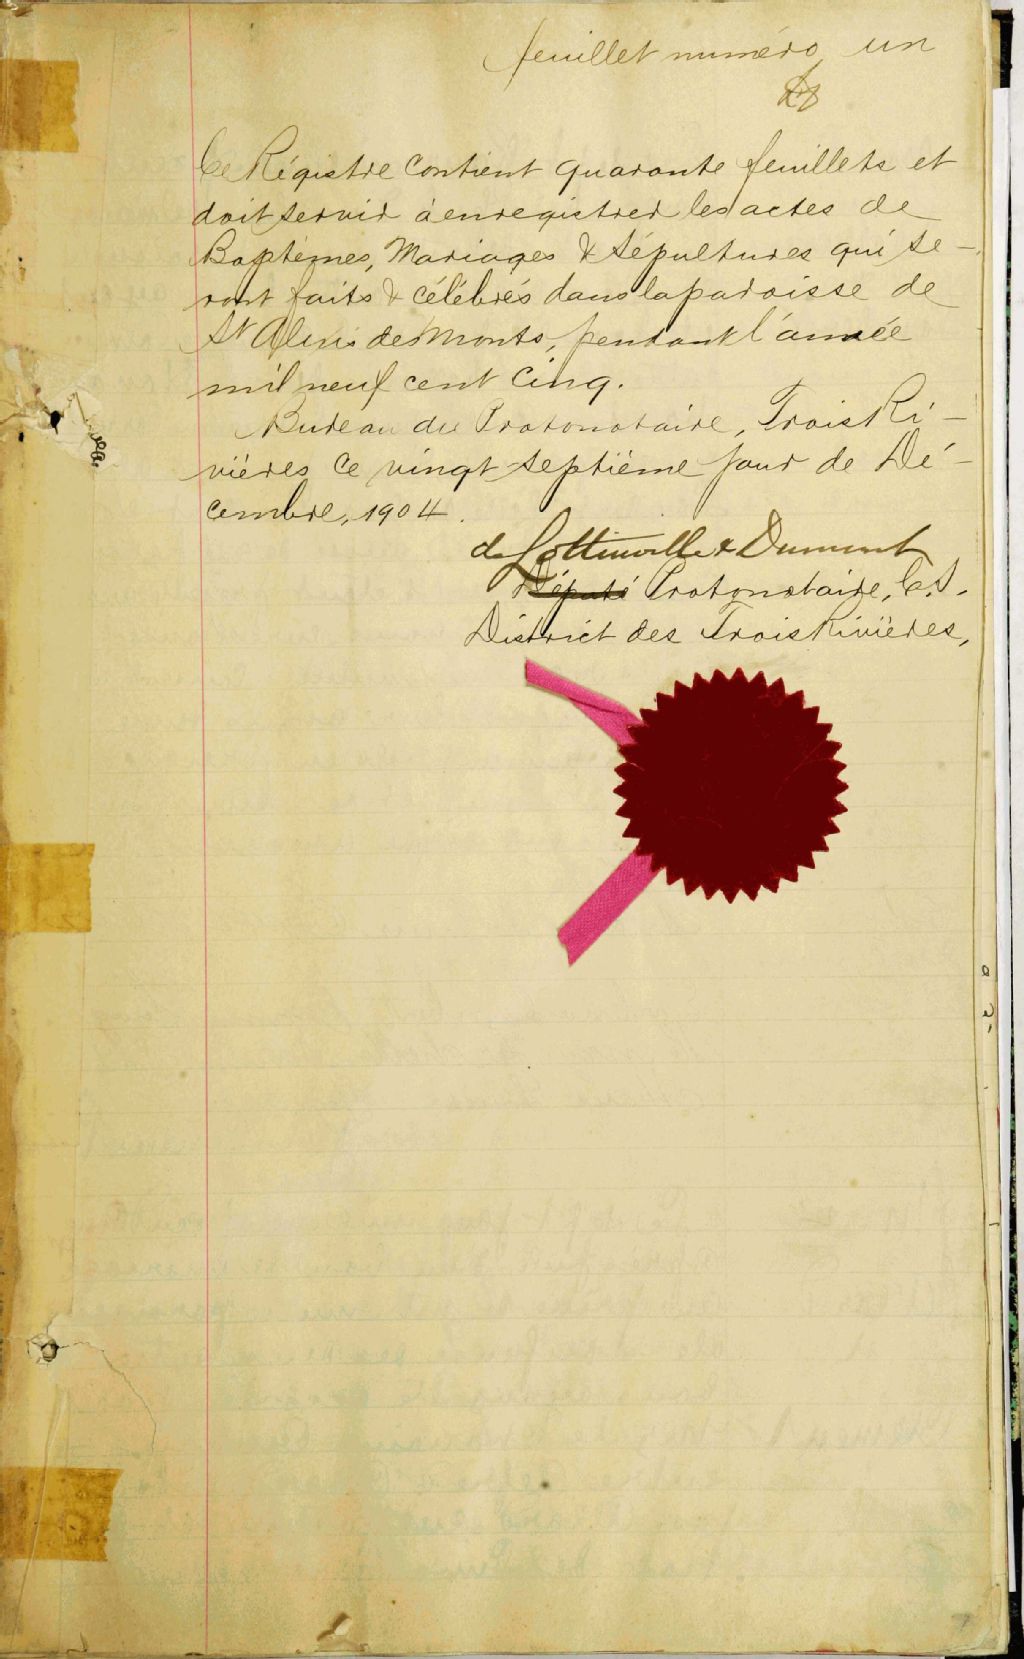 feuillet numéro un
Ce Régistre contient quarante feuillets et
doit servir à enregistrer les actes de
Baptêmes, Mariages & Sépultures qui se-
ront faits & célébrés dans la paroisse de
St Alexis des Monts, pendant l'année
mil neuf cent Cinq.
Bureau du Protonotaire, Trois Ri-
vières ce vingt septième jour de Dé-
cembre, 1904.
de Lottinville & Dumont
Député Protonotaire, C. S.
District des Trois Rivières,